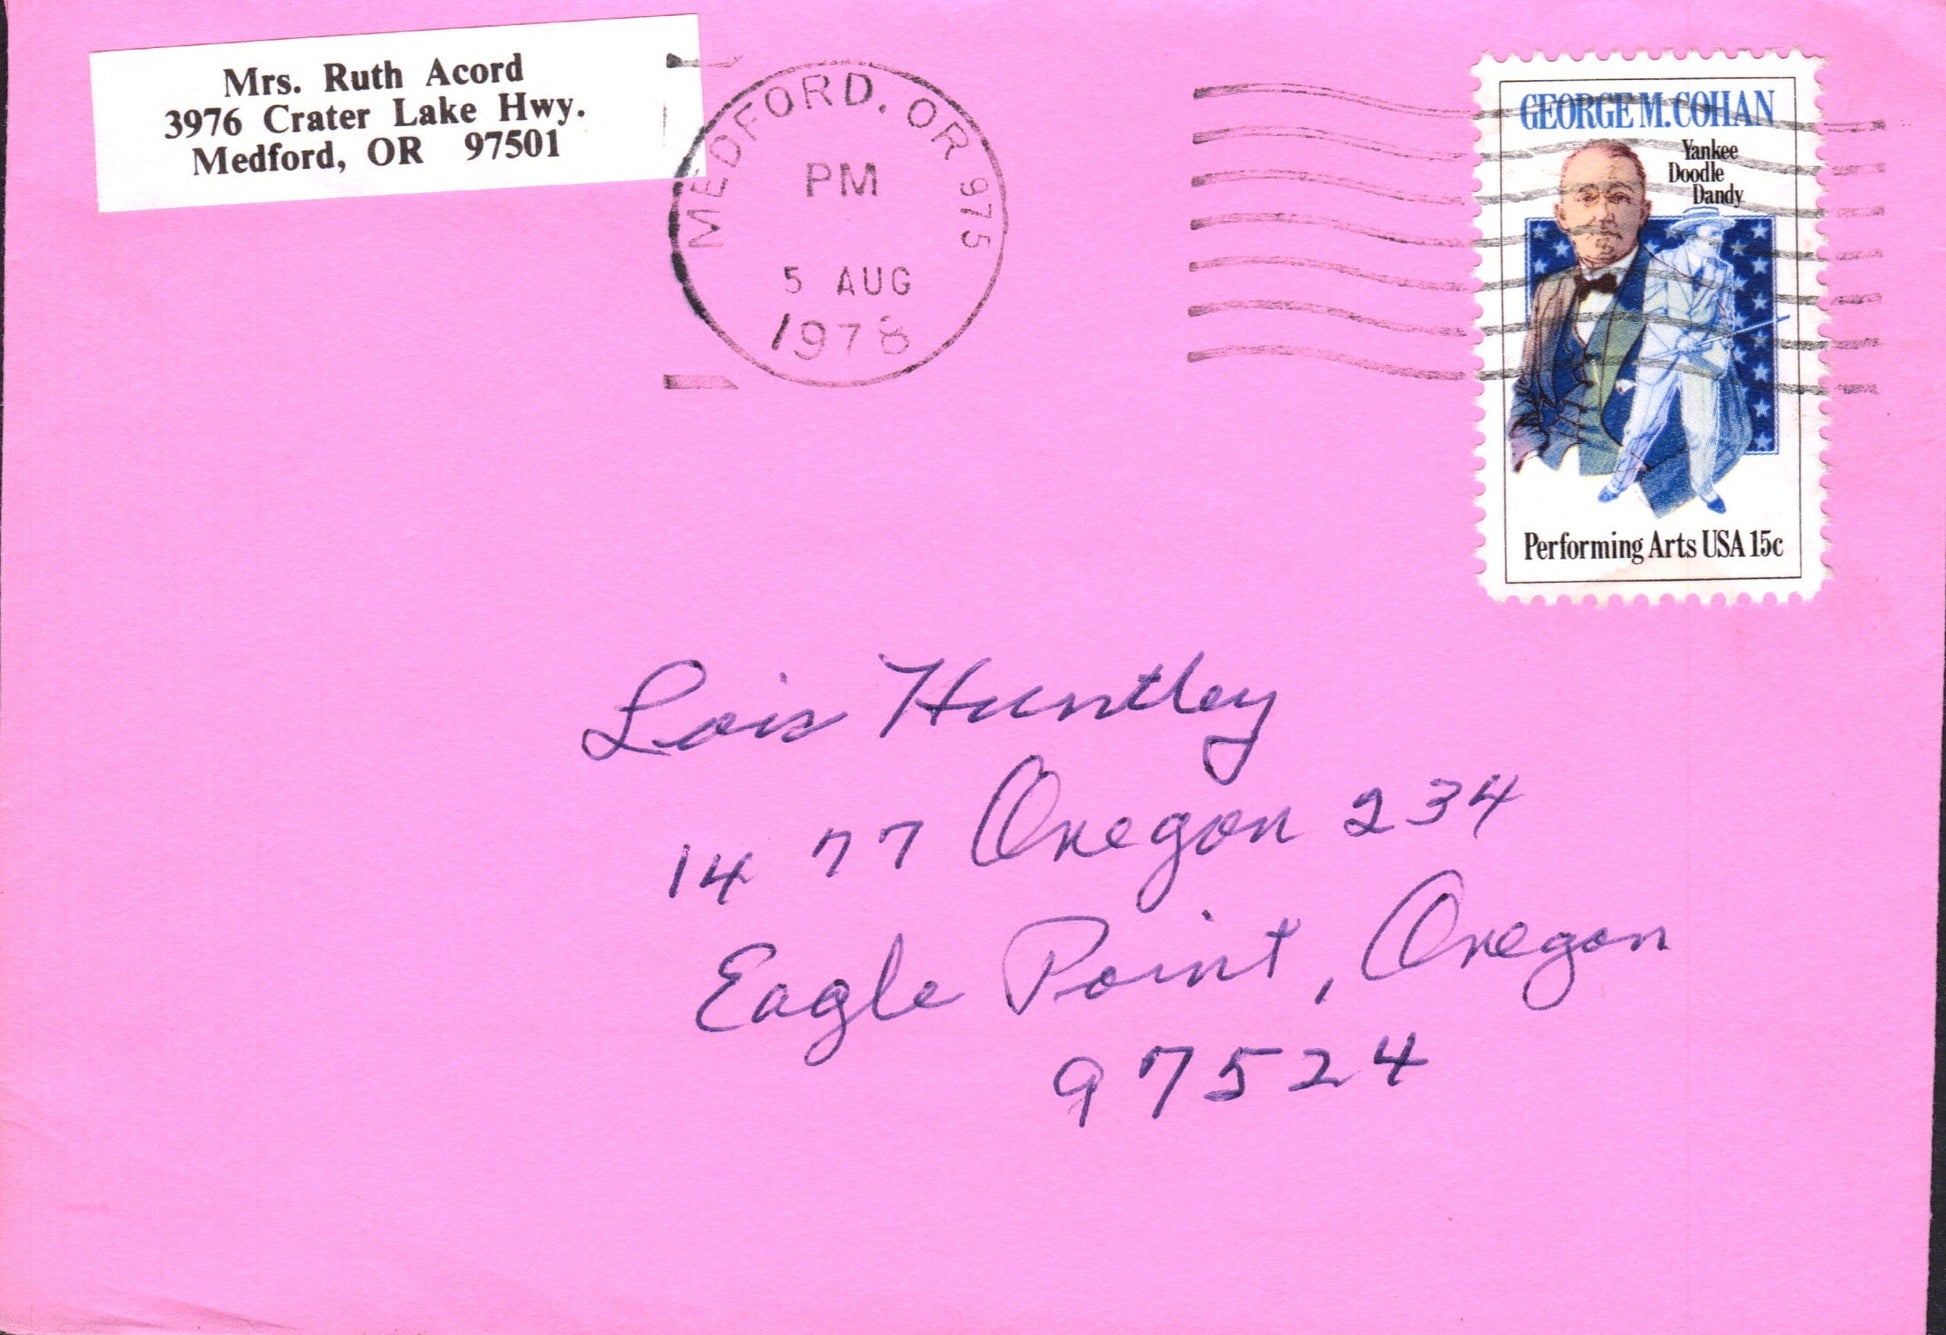 Mrs. Ruth Acord
3976 Crater Lake Hwy.
Medford, OR 97501
MEDFORD, OR 975
PM
5 AUG
1978
GEORGE M. COHAN
Yankee
Doodle
Dandy
Performing Arts USA 15c
Lois Huntley
1477 Oregon 234
Eagle Point, Oregon
97524